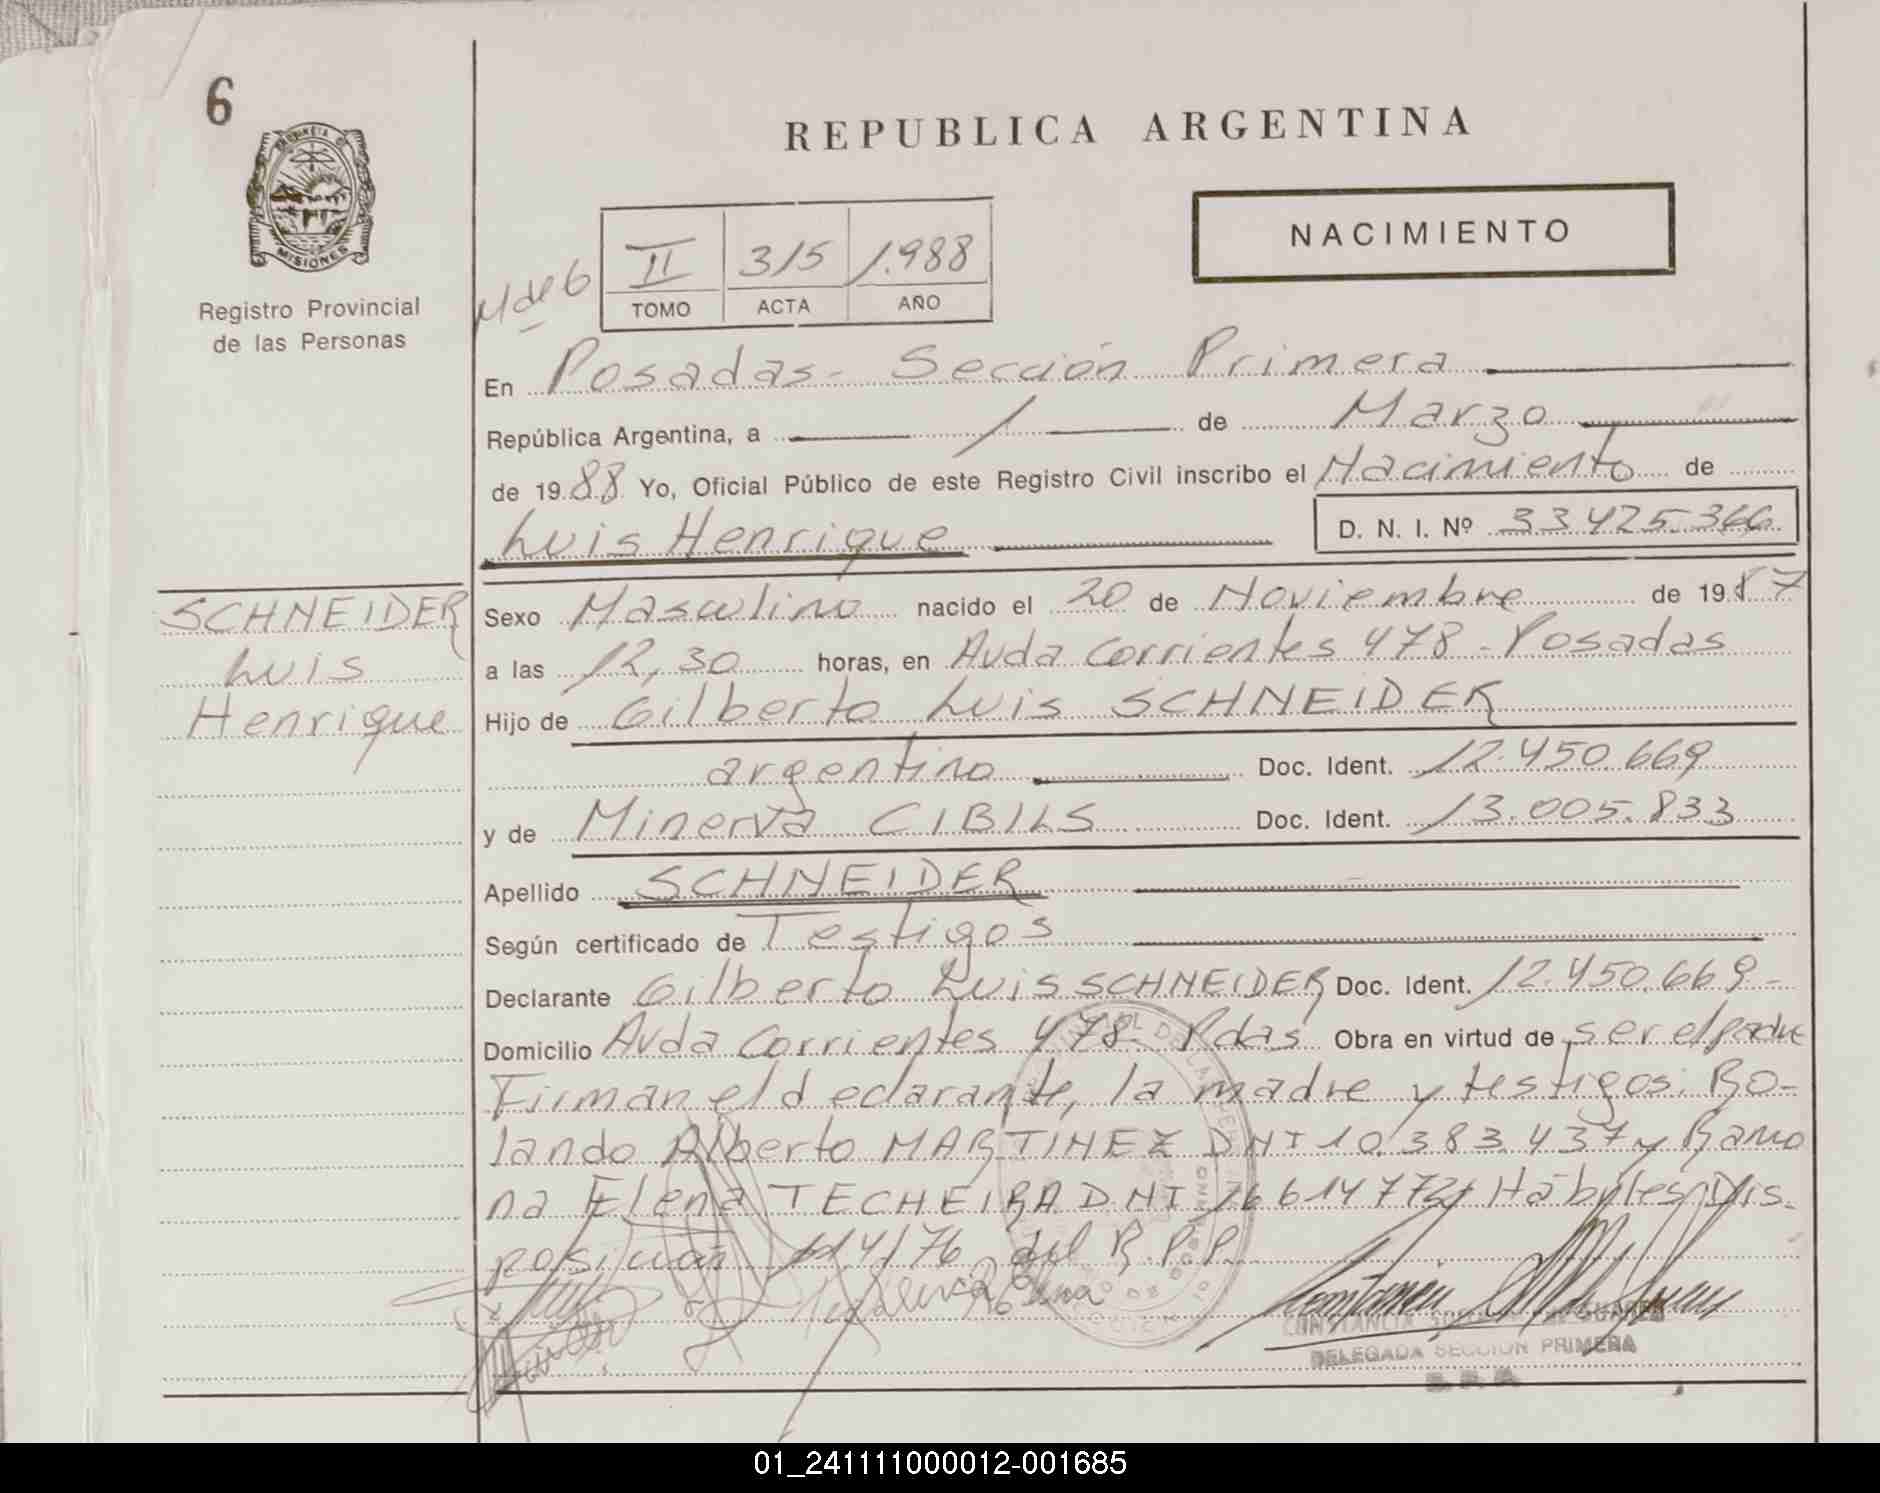 6
REPUBLICA ARGENTINA
PROVINCIA DE
MISIONES
NACIMIENTO
II 315 1.988
TOMO ACTA AÑO
Registro Provincial
de las Personas
En Posadas - Sección Primera
República Argentina, a 1 de Marzo
de 1988 Yo, Oficial Público de este Registro Civil inscribo el Nacimiento de
Luis Henrique D. N. I. Nº 33.425.366
SCHNEIDER
Luis
Henrique
Sexo Masculino nacido el 20 de Noviembre de 1987
a las 12,30 horas, en Avda Corrientes 478 - Posadas
Hijo de Gilberto Luis SCHNEIDER
argentino Doc. Ident. 12.450.669
y de Minerva CIBILS Doc. Ident. 13.005.833
Apellido SCHNEIDER
Según certificado de Testigos
Declarante Gilberto Luis SCHNEIDER Doc. Ident. 12.450.669-
Domicilio Avda Corrientes 478- Pdas Obra en virtud de ser el padre
Firman el declarante, la madre y testigos: Ro-
lando Alberto MARTINEZ DNI 10.383.437 y Ramo
na Elena TECHEIRA DNI 16614772, Hábiles, Dis-
posición 114/76 del R.P.P.
CONSTANCIA
DELEGADA SECCION PRIMERA
R. P. P.
01_241111000012-001685